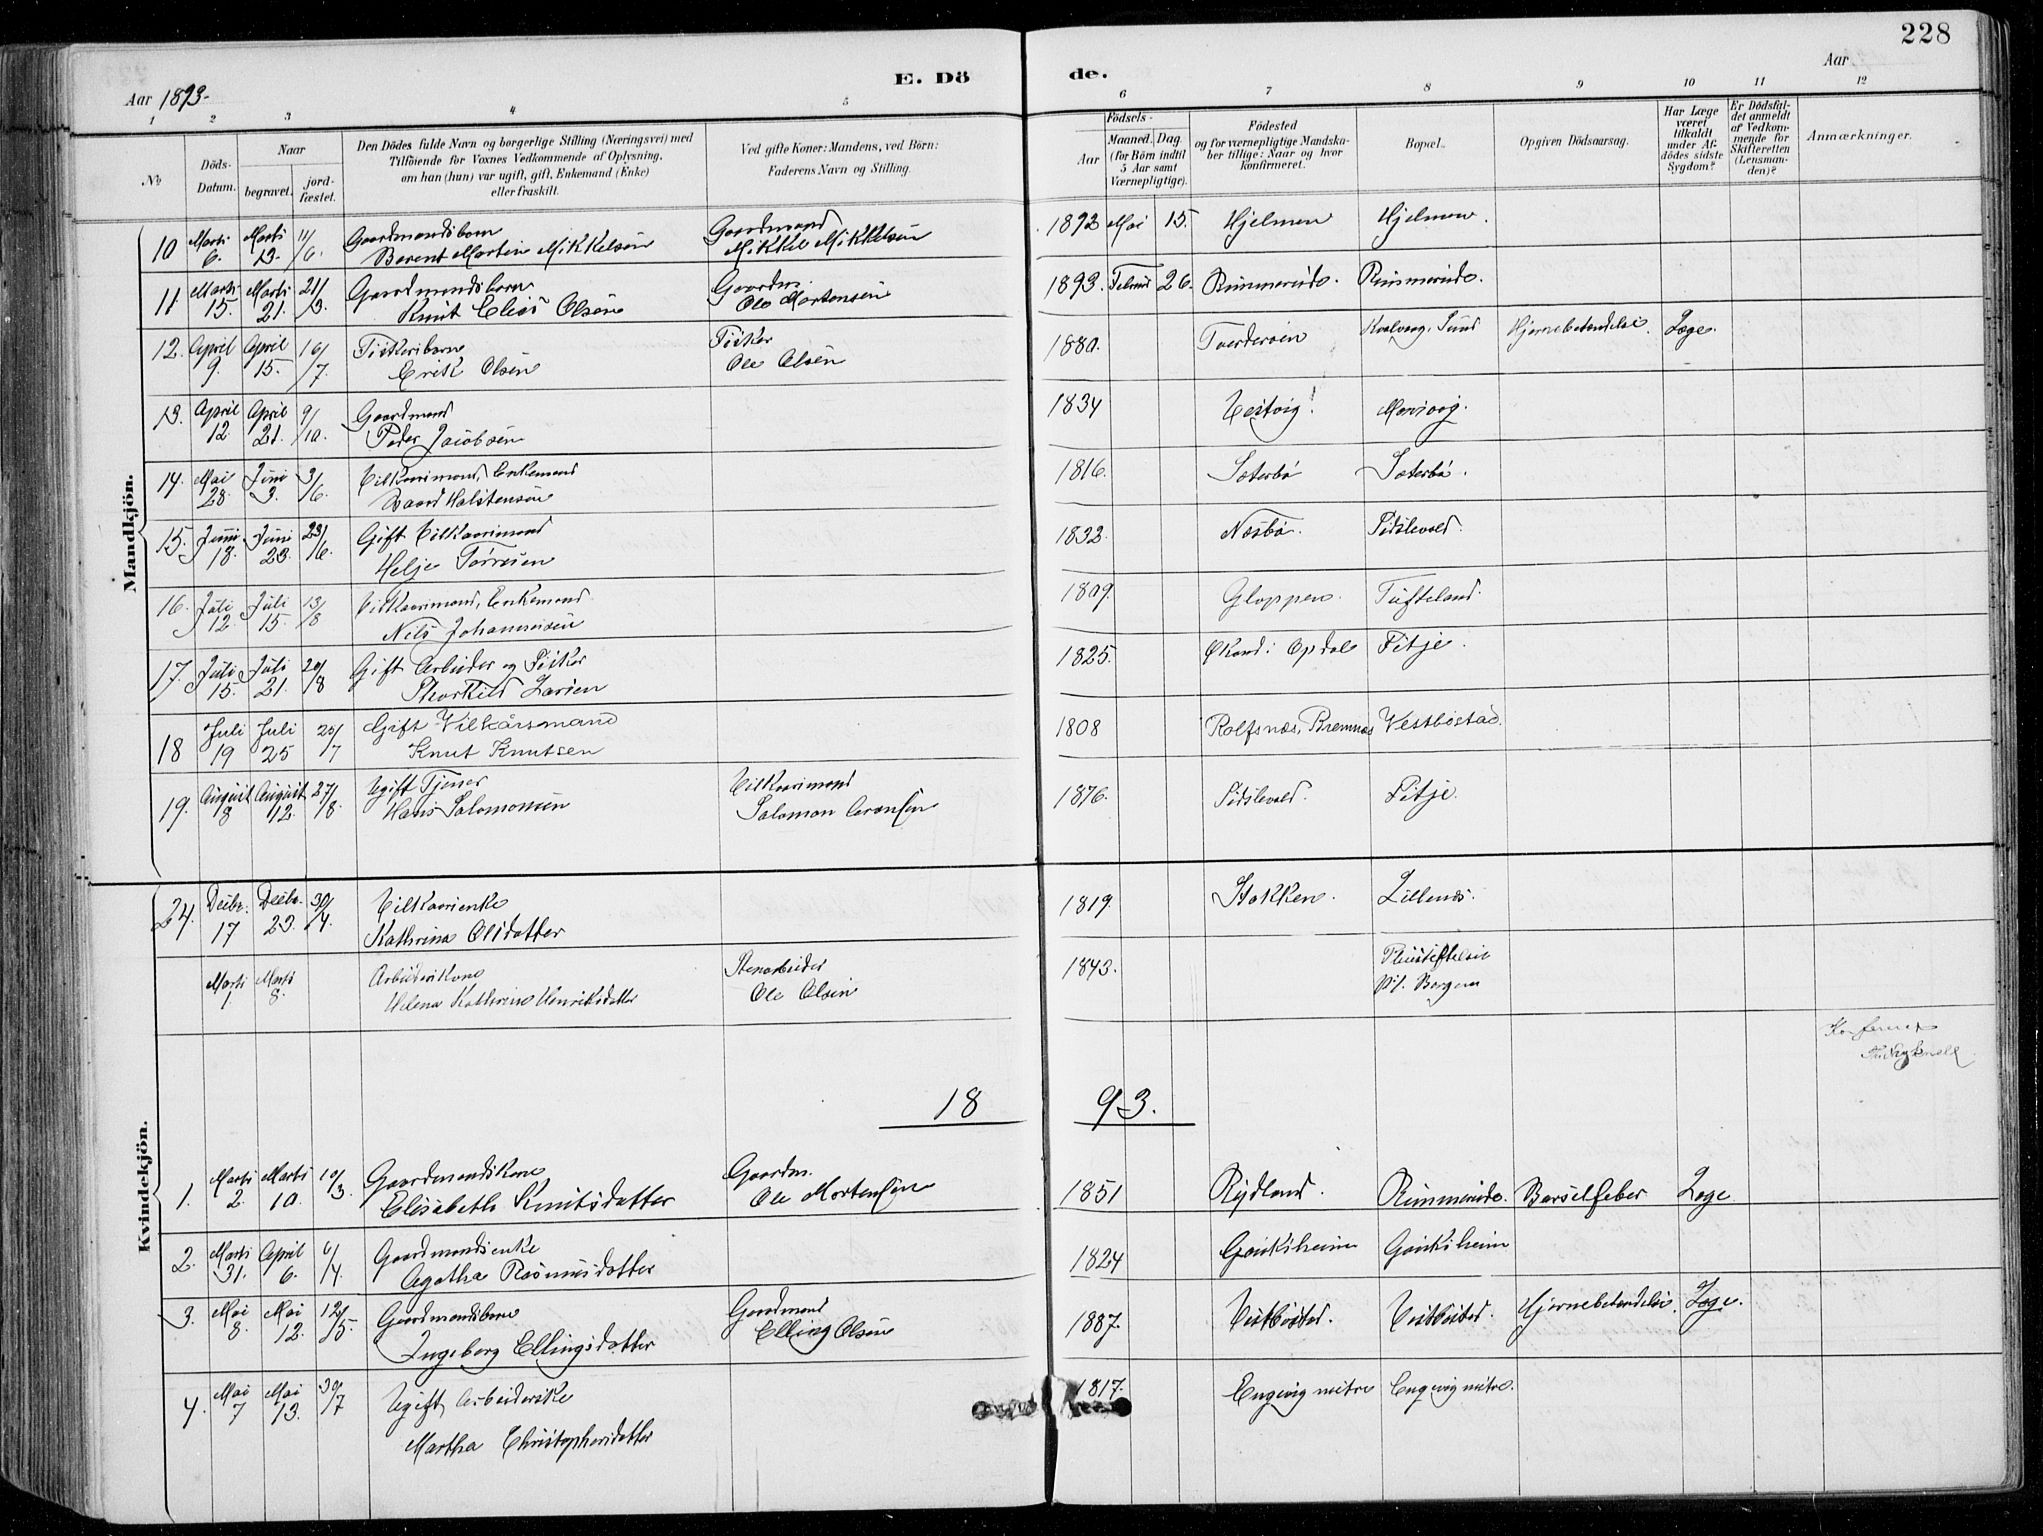 228
E. Döde.
Aar 1893.
Aar
1 2 3 4 5 6 7 8 9 10 11 12
№
Döds-Datum.
Naar
begravet.
jord-fæstet.
Den Dödes fulde Navn og borgerlige Stilling (Næringsvei) med
Tilföiende for Voxnes Vedkommende af Oplysning,
om han (hun) var ugift, gift, Enkemand (Enke)
eller fraskilt.
Ved gifte Koner: Mandens, ved Börn:
Faderens Navn og Stilling.
Födsels-
Aar
Maaned. Dag.
(for Börn indtil
5 Aar samt
Værnepligtige).
Födested
og for værnepligtige Mandska-
ber tillige: Naar og hvor
konfirmeret.
Bopæl.
Opgiven Dödsaarsag.
Har Læge
været
tilkaldt
under Af-
dödes sidste
Sygdom?
Er Dödsfal-
det anmeldt
af Vedkom-
mende for
Skifteretten
(Lensman-
den)?
Anmærkninger.
Mandkjön.
10 Marts 6. Marts 13. 11/6. Gaardmandsbarn Gaardmand 1892 Mai 15. Hjelmen Hjelmen.
Berent Martin Mikkelsen Mikkel Mikkelsen
11. Marts 15. Marts 21. 21/3. Gaardmandsbarn Gaardm. 1893. Februar 26. Rimmereide. Rimmereide.
Knut Elias Olsen Ole Mortensen
12. April 9. April 15. 16/7. Fiskerbarn Fisker 1880. Hjernebetændelse. Læge.
Erik Olsen Ole Olsen
13. April 12 April 21. 9/10. Gaardmand 1834
Peder Jacobsen
14. Mai 28. Juni 3. 3/6. Vilkaarsmand, Enkemand 1816. Sæterbø Sæterbø.
Baard Halstensen
15. Juni 18. Juni 23. 23/6. Gift Vilkaarsmand 1832. Næsbø.
Helje Torresen
16. Juli 12. Juli 15. 13/8 Vilkaarsmand, Enkemand 1809. Gloppen. Tufteland.
Nils Johannesen
17. Juli 15. Juli 21. 20/8 Gift Arbeider og Fisker 1825. Opdal Fitje.
Thorkild Larsen
18 Juli 19 Juli 25 25/7 Gift Vilkårsmand 1808 Rolfsnæs, Bremnæs Vestbøstad.
Knut Knutsen
19. August 8 August 12. 27/8. Ugift Tjener Vilkaarsmand 1876. Fitje.
Hans Salomonsen Salomon Aronsen
24. Decbr. 17 Decbr. 23. 30/4. Vilkaarsenke 1819. Stokken. Lillenæs.
Kathrina Olsdatter
Marts 1 Marts 8. Arbeiderkone Stenarbeider 1843. Pleiestiftelsen
Helena Kathrine Henriksdatter Ole Olsen Bergen
Kvindekjön.
18 93.
1. Marts 2. Marts 10. 10/3. Gaardmandskone Gaardm. 1851 Rydland. Rimmereide. Barselfeber Læge
Elisabeth Knutsdatter Ole Mortensen
2. Marts 31. April 6. 6/4. Gaardmandsenke 1824
Agatha Rasmusdatter
3. Mai 8. Mai 12. 12/5. Gaardmandsbarn Gaardmand 1887. Vestbøstad. Vestbøstad. Hjernebetændelse. Læge.
Ingeborg Ellingsdatter Elling Olsen
4. Mai 7 Mai 13. 30/7 Ugift Arbeiderske 1817. Engevig nitre Engevig nitre.
Martha Christophersdatter